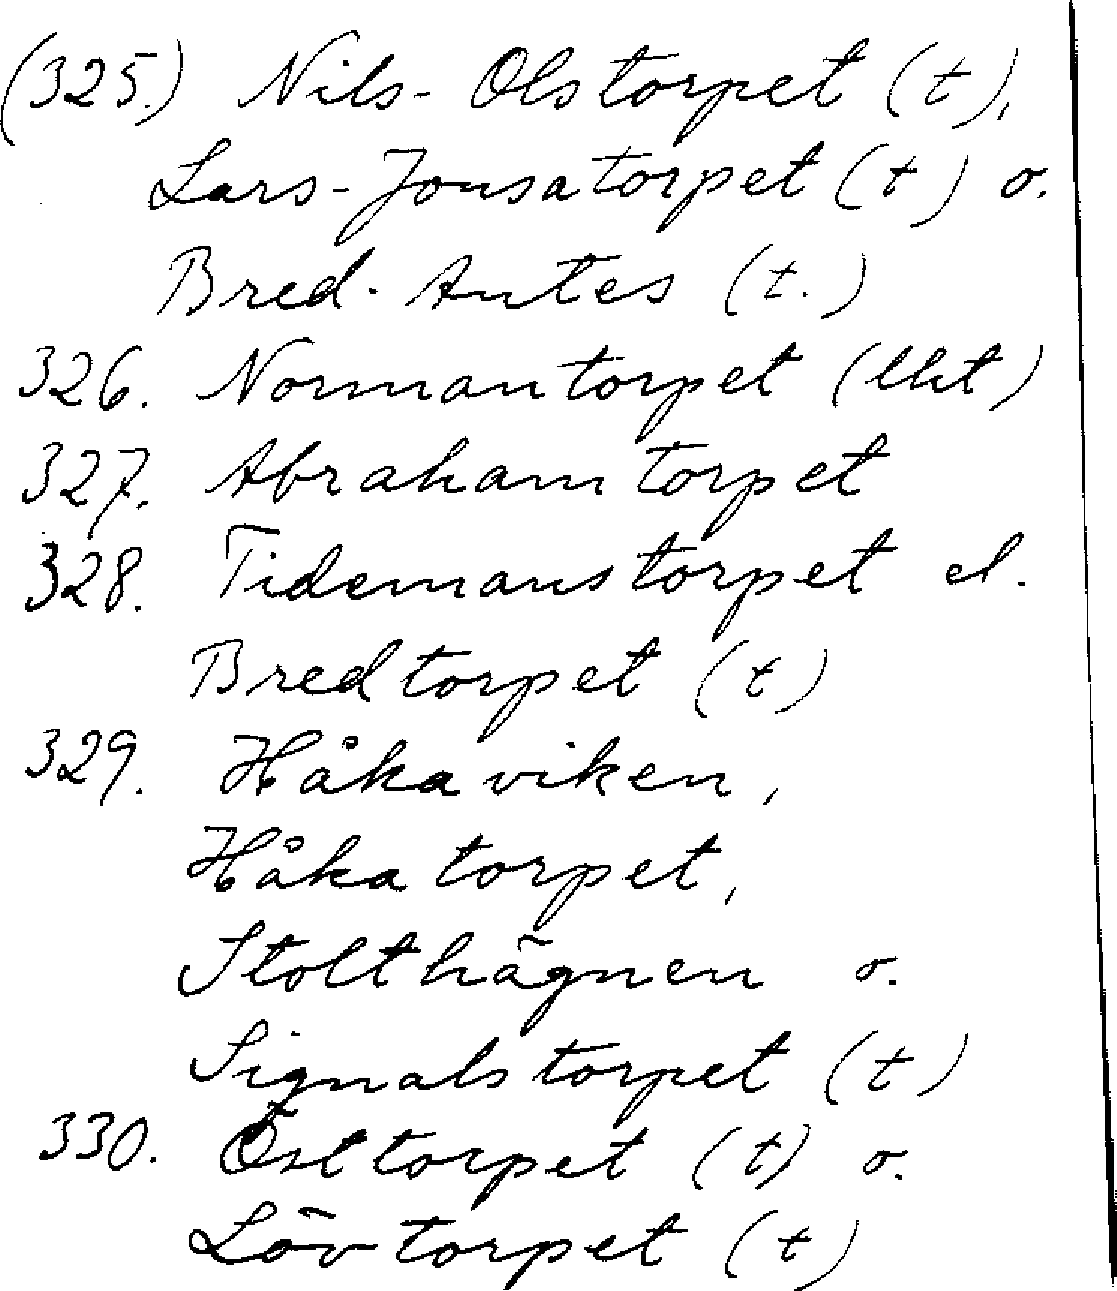 (325.) Nils-Olstorpet (t),
Lars-Jonsatorpet (t) o.
Bred-Antes (t.)
326. Normantorpet (lht)
327. Abrahamtorpet
328. Tidemanstorpet el.
Bredtorpet (t)
329. Håkaviken,
Håkatorpet,
Stolthägnen o.
Signalstorpet (t)
330. Östtorpet (t) o.
Lövtorpet (t)